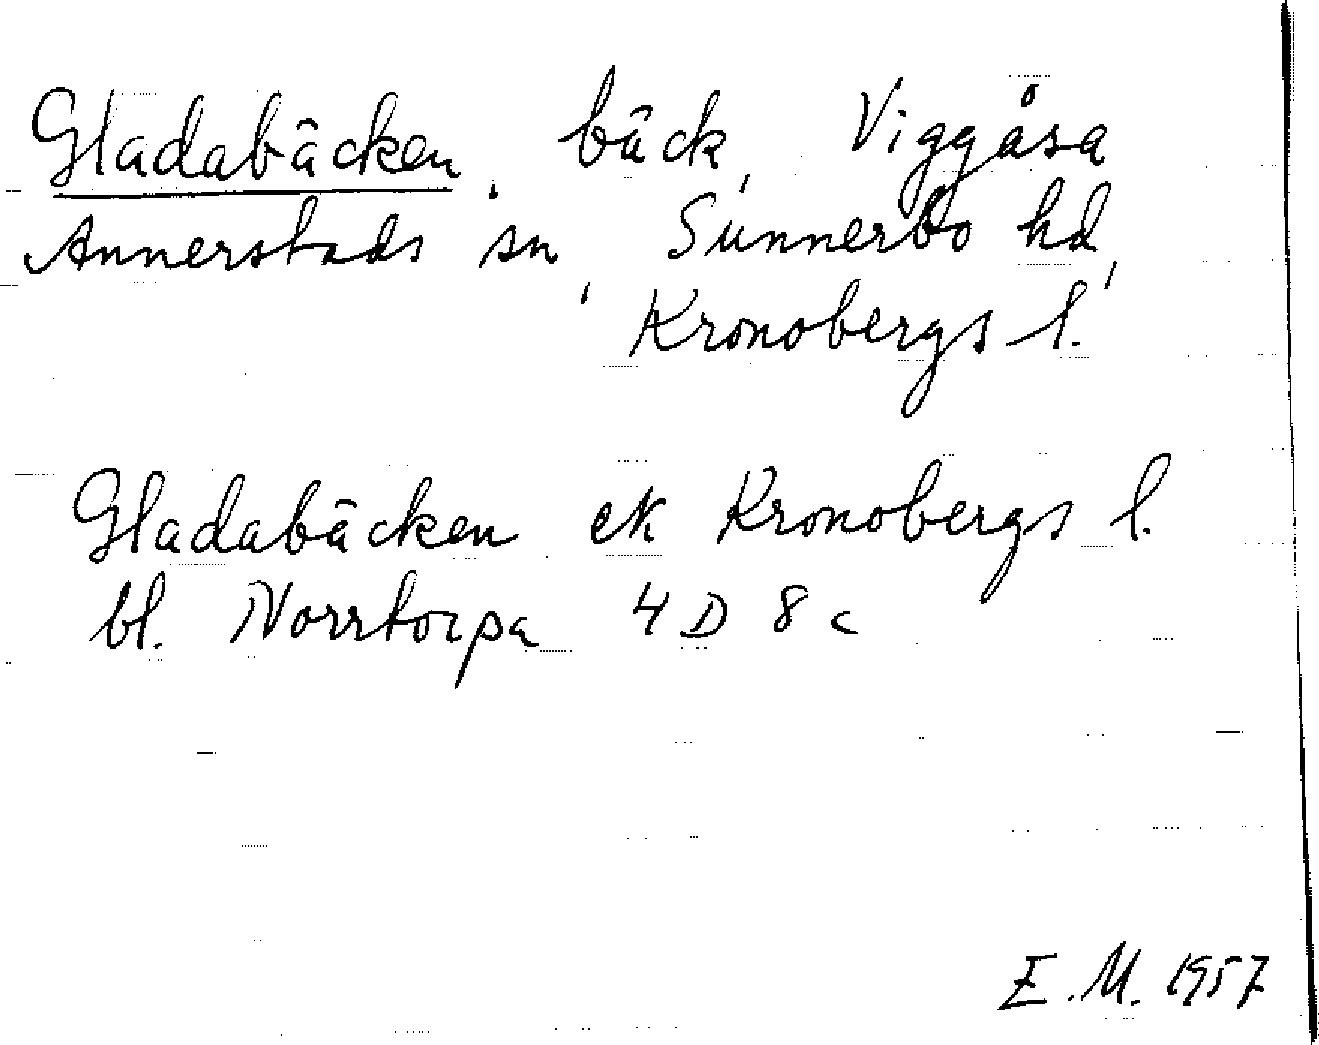 Gladabäcken, bäck, Viggåsa
Annerstads sn, Sunnerbo hd,
Kronobergs l.
Gladabäcken ek Kronobergs l.
bl. Norrtorpa 4 D 8 c
E. M. 1957